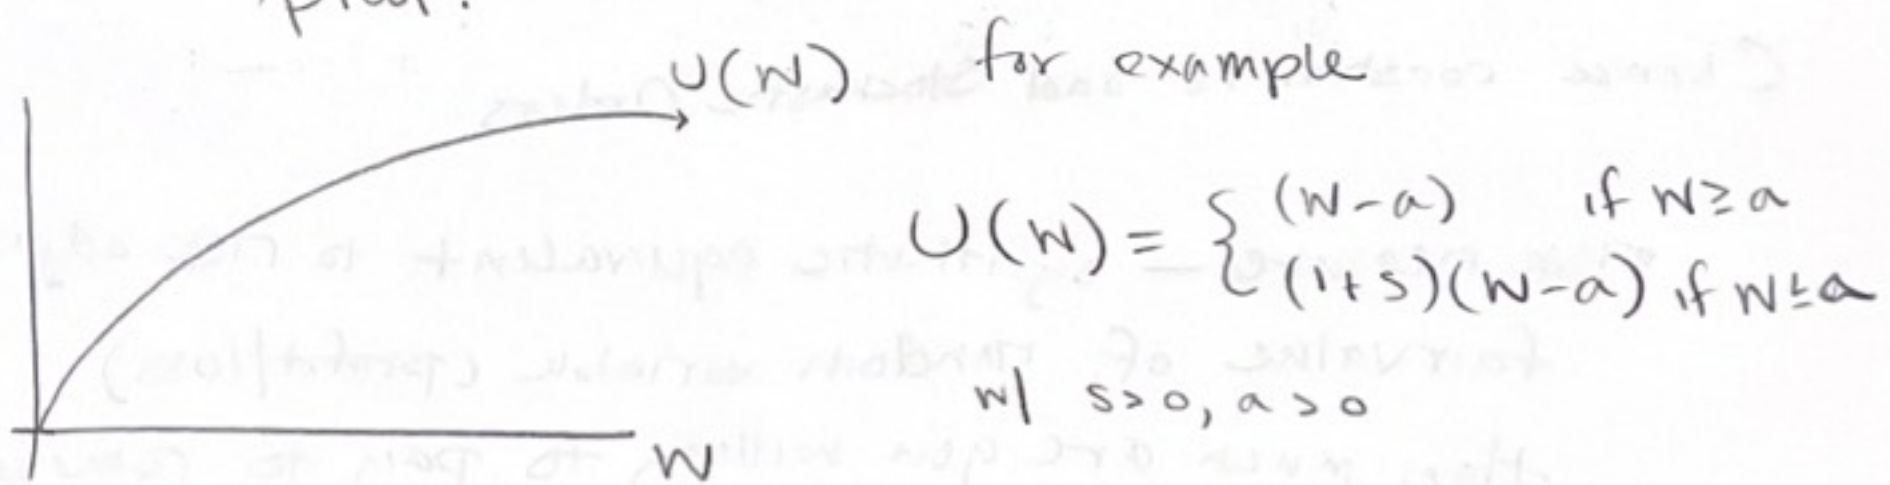 plot:
U(W) for example
U(W) = { (W-a) if W≥a
(1+s)(W-a) if W≤a
w/ s>0, a>0
W